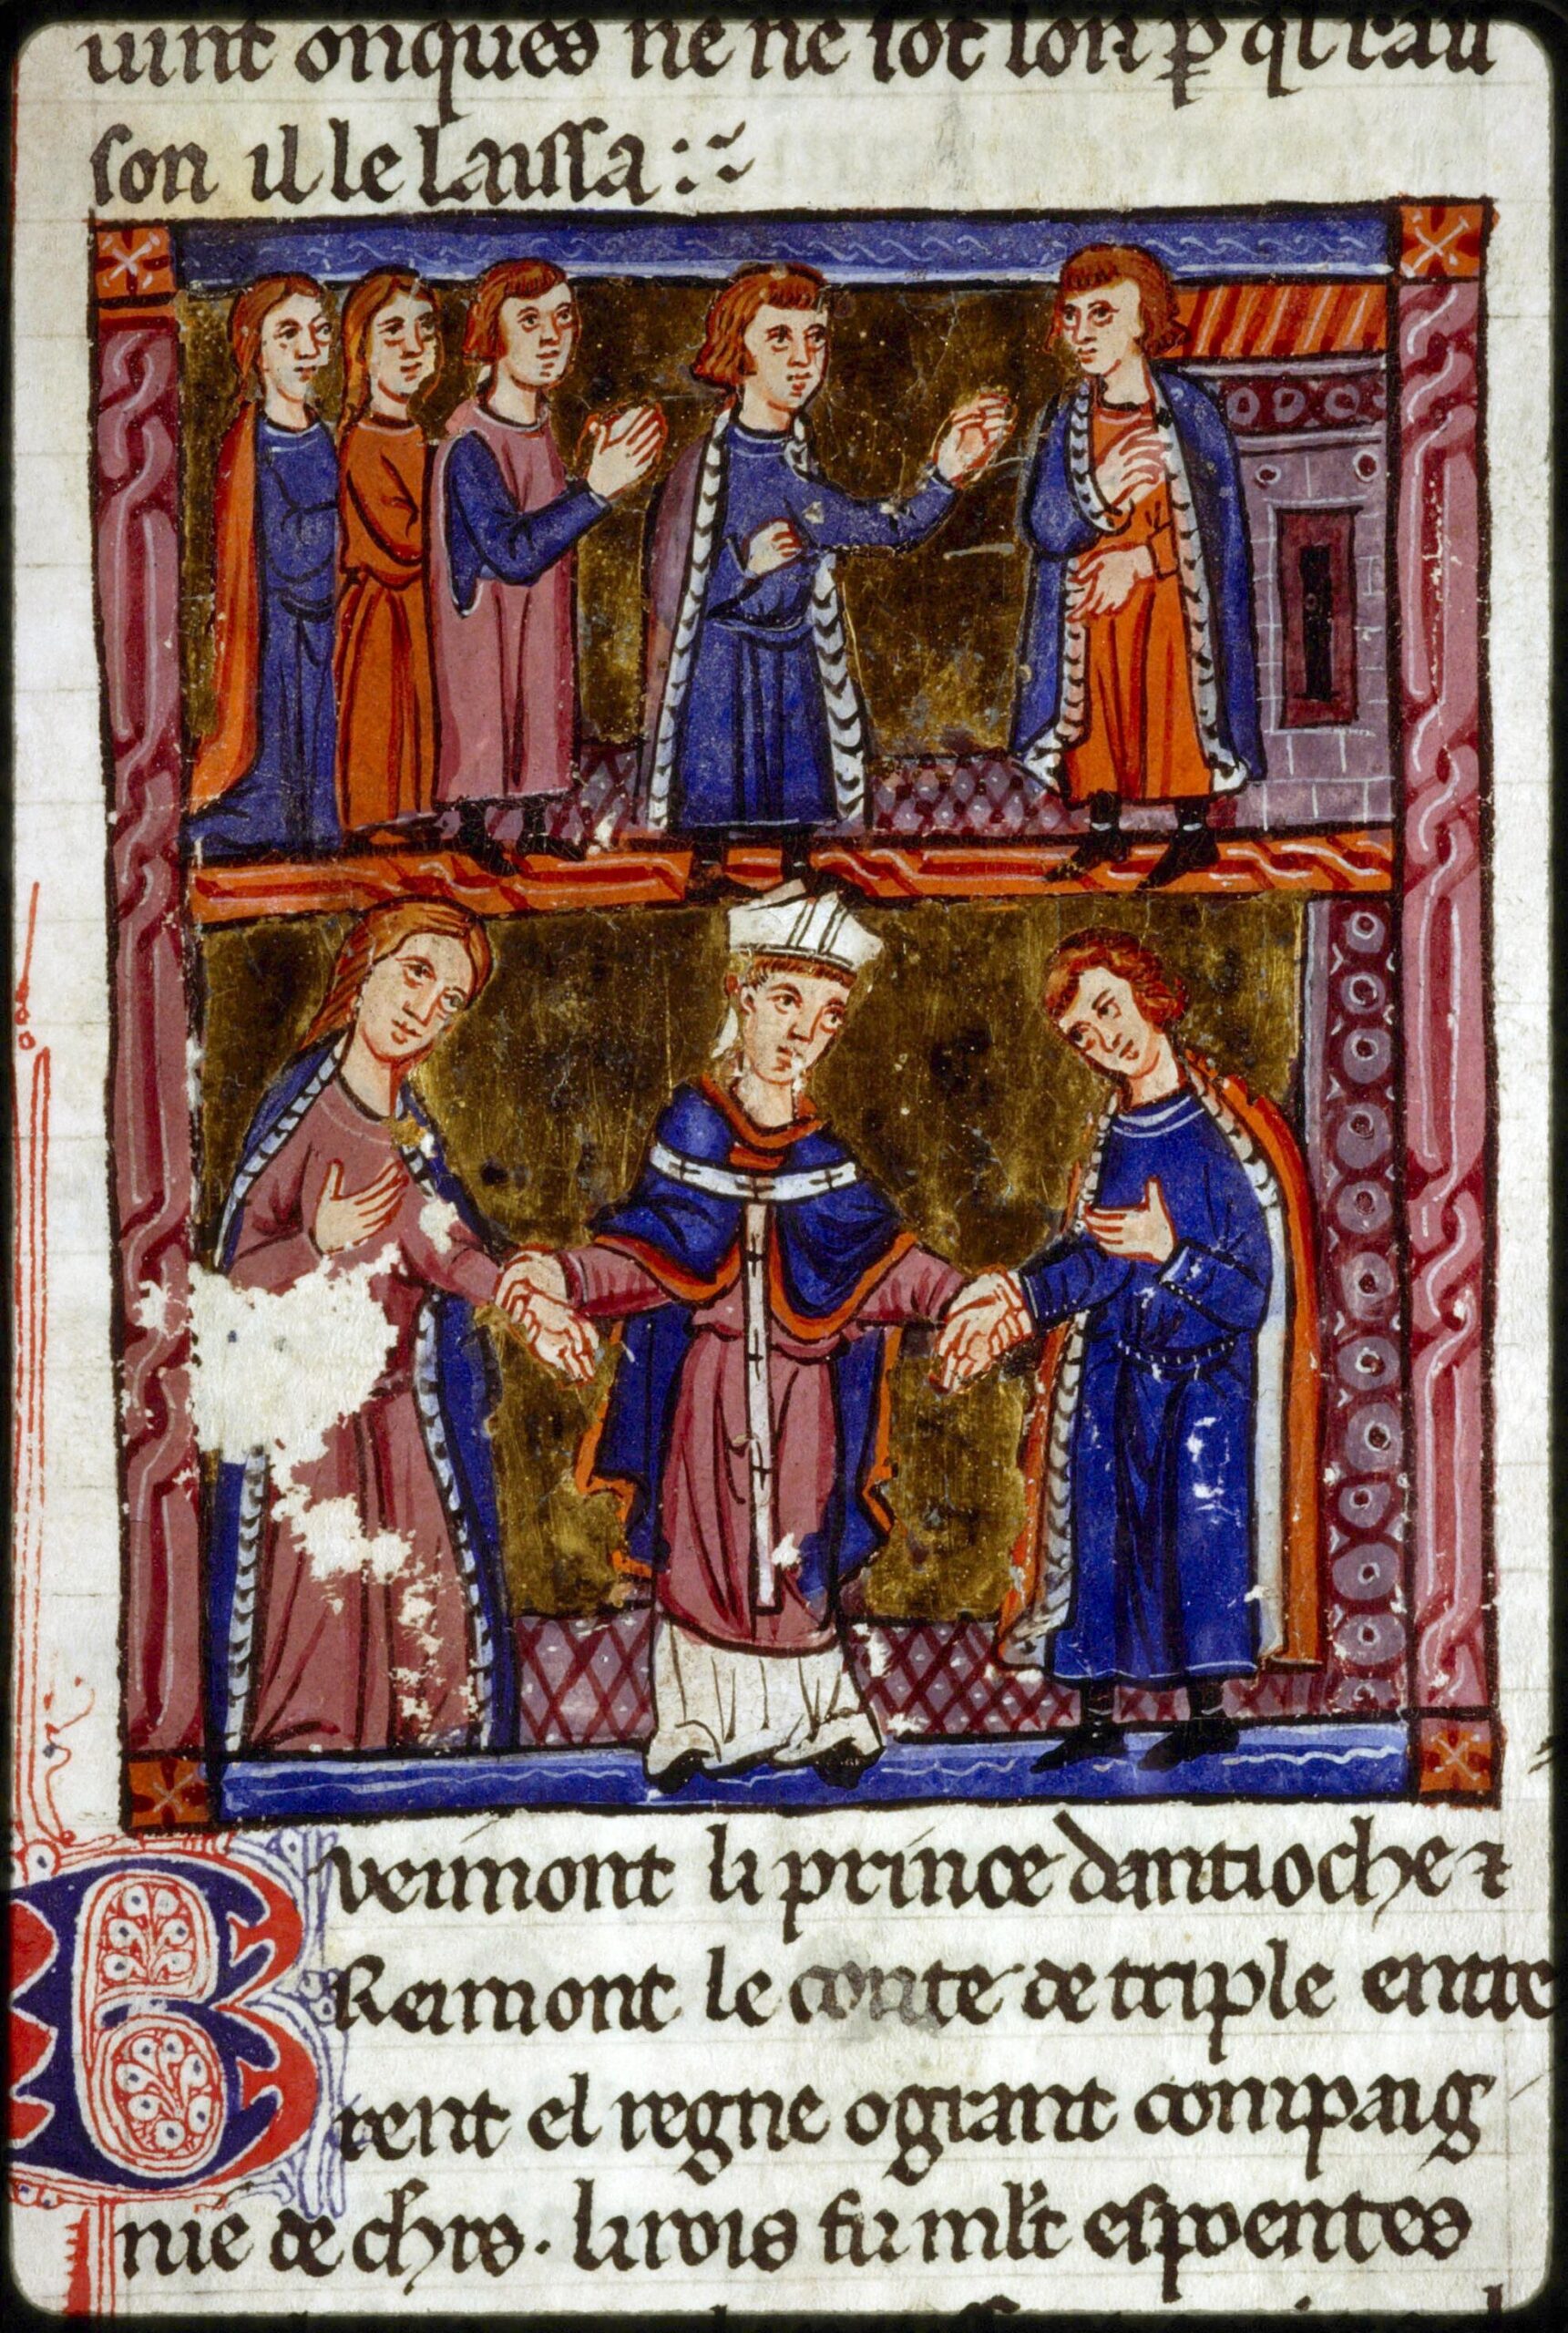 uint onques ne ne sot lon p̱ ql rai
son il le laissa :~
Bveimont li prince dantioche ⁊
Reimont le conte de triple entre
rent el regne o grant compaig
nie de chrs. li rois fu mlt espoentes